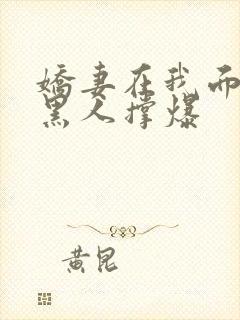 嬌妻在我面
黑人撐爆
黃昆